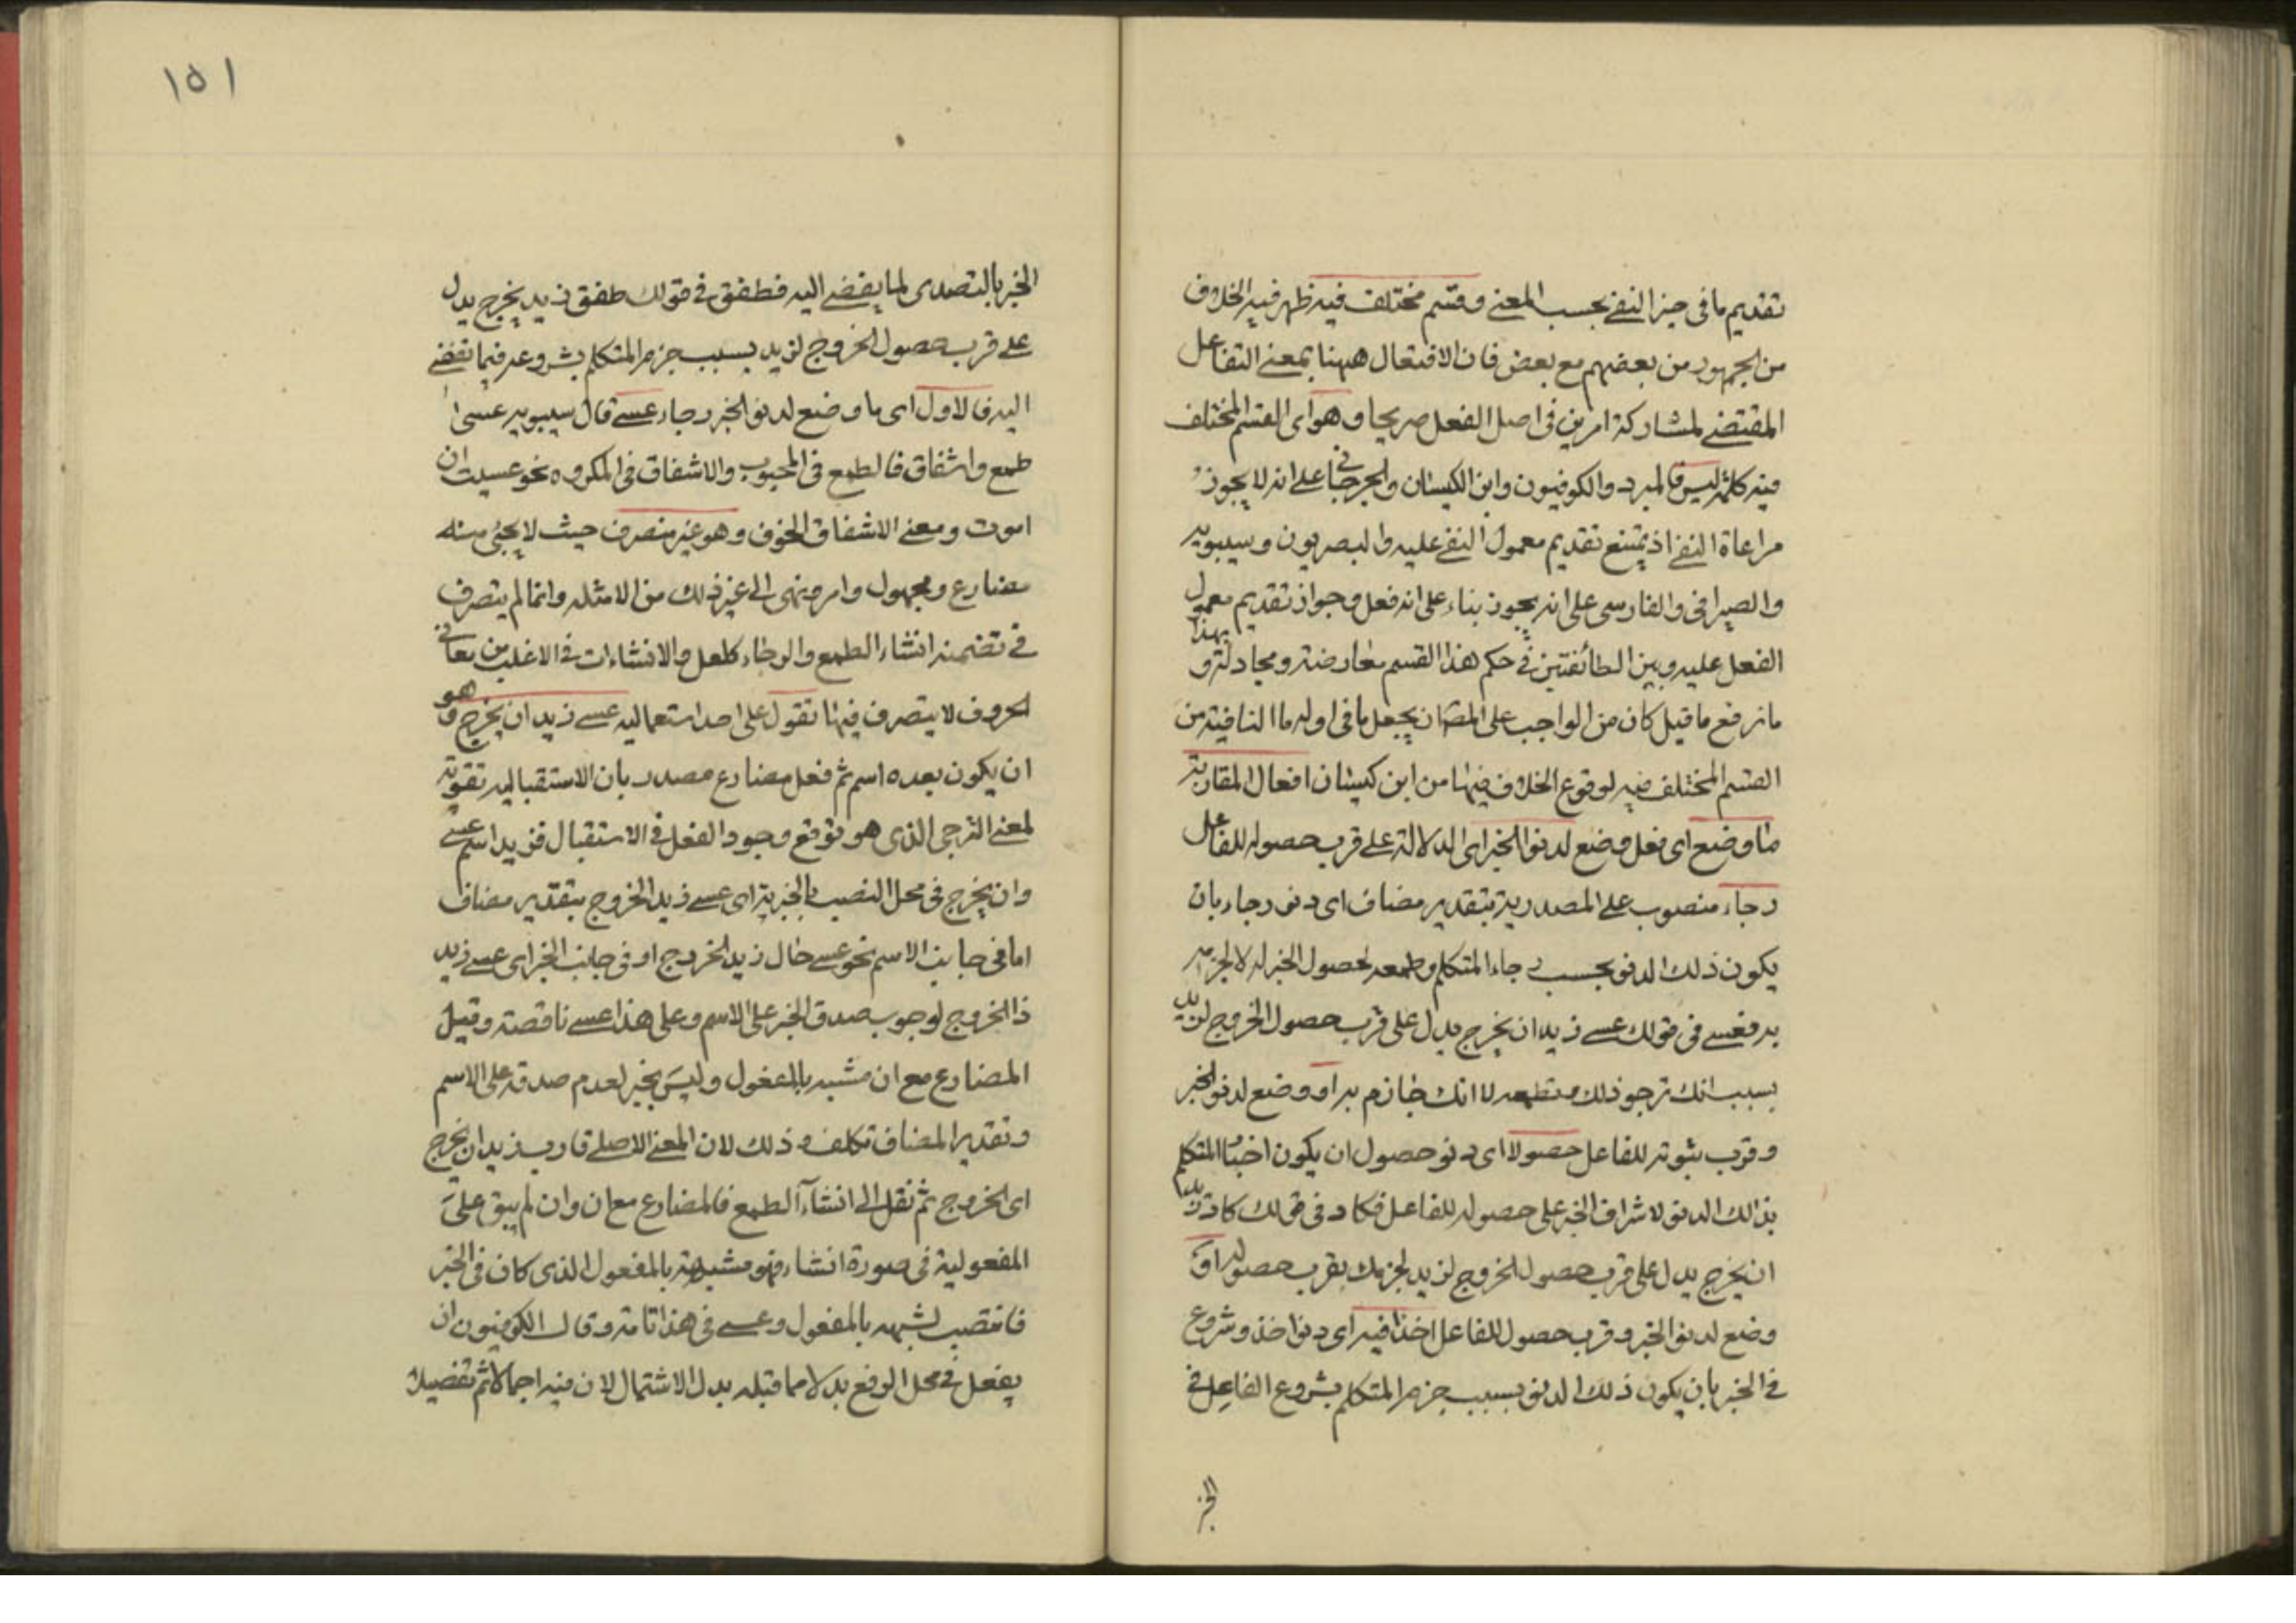 تقديم ما فى حيز النفى بحسب المعنى وقسم مختلف فيه ظهر فيه الخلاف
من الجمهور من بعضهم مع بعض فان الافتعال ههنا بمعنى التفاعل
المقتضى لمشاركة امرين فى اصل الفعل صريحا وهو اى القسم المختلف
فيه كلمة ليس فالمبرد والكوفيون وابن الكيسان والجرجانى على انه لا يجوز
مراعاة النفى اذ يمتنع تقديم معمول النفى عليه والبصريون وسيبويه
والصيرافى والفارسى على انه يجوز بناء على انه فعل وجواز تقديم معمول
الفعل عليه وبين الطائفتين فى حكم هذا القسم معارضة ومجادلة و بهذا
ما نرفع ما قيل كان من الواجب على المص ان يجعل ما فى اوله ما النافية من
القسم المختلف فيه لوقوع الخلاف فيها من ابن كيسان افعال المقاربة
ما وضع اى فعل وضع لدنو الخبر اى الدلالة على قرب حصوله للفاعل
رجاء منصوب على المصدرية بتقدير مضاف اى دنو رجاء بان
يكون ذلك الدنو بحسب رجاء المتكلم وطمعه لحصول الخبر له لا لجزمه
به فعسى فى قولك عسى زيد ان يخرج يدل على قرب حصول الخروج لزيد
بسبب انك ترجو ذلك وتطمعه لا انك جازم به او وضع لدنو الخبر
وقرب ثبوته للفاعل حصولا اى دنو حصول ان يكون اخبار المتكلم
بذالك الدنو لاشراف الخبر على حصوله للفاعل فكاد فى قولك كاد زيد
ان يخرج يدل على قرب حصول الخروج لزيد لجزمك بقرب حصوله او
وضع لدنو الخبر وقرب حصول للفاعل اخذا فيه اى دنو اخذ وشروع
فى الخبر بان يكون ذلك الدنو بسبب جزم المتكلم بشروع الفاعل فى
الخبر
١٥١
الخبر بالتصدى لما يفضى اليه فطفق فى قولك طفق زيد يخرج يدل
على قرب حصول الخروج لزيد بسبب جزم المتكلم بشروعه فيما تفضى
اليه فالاول اى ما وضع لدنو الخبر رجاء عسى قال سيبويه عسى
طمع واشفاق فالطمع فى المحبوب والاشفاق فى المكروه نحو عسيت ان
اموت ومعنى الاشفاق الخوف وهو غير متصرف حيث لا يجئ منه
مضارع ومجهول وامر ونهى الى غير ذلك من الامثلة وانما لم يتصرف
فى تضمنه انشاء الطمع والرجاء كلعل والانشاءات فى الاغلب من معانى
الحروف لا يتصرف فيها تقول على احد استعماليه عسى زيد ان يخرج وهو
ان يكون بعده اسم ثم فعل مضارع مصدر بان الاستقبالية تقوية
لمعنى الترجى الذى هو توقع وجود الفعل فى الاستقبال فزيد اسم عسى
وان يخرج فى محل النصب بالخبرية اى عسى زيد الخروج بتقدير مضاف
اما فى جانب الاسم نحو عسى حال زيد الخروج او فى جانب الخبر اى عسى زيد
ذا الخروج لوجوب صدق الخبر على الاسم وعلى هذا عسى ناقصة وقيل
المضارع مع ان مشبه بالمفعول وليس بخبر لعدم صدقه على الاسم
وتقدير المضاف تكلف وذلك لان المعنى الاصلى قارب زيد ان يخرج
اى الخروج ثم نقل الى انشاء الطمع فالمضارع مع ان وان لم يبق على
المفعولية فى صورة انشاء فهو مشبهة بالمفعول الذى كان فى الخبر
فانتصب لشبهه بالمفعول وعسى فى هذا تامة وقال الكوفيون ان
يفعل فى محل الرفع بدلا مما قبله بدل الاشتمال لان فيه اجمالا ثم تفصيلا